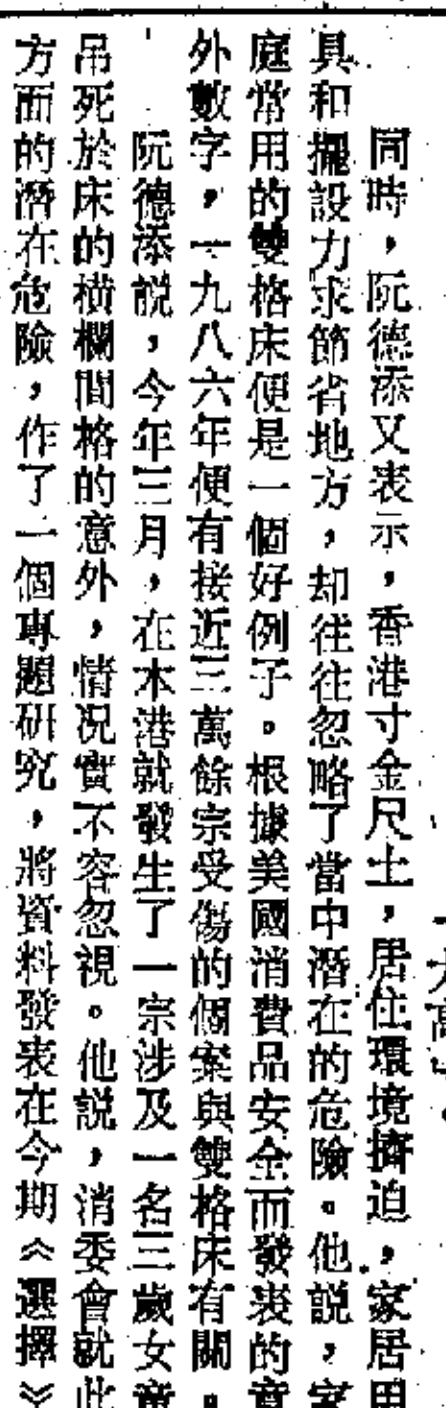 同時，阮德添又表示，香港寸金尺土，居住環境擠迫，家居用
具和擺設力求節省地方，却往往忽略了當中潛在的危險。他説，家
庭常用的雙格床便是一個好例子。根據美國消費品安全而發表的意
外數字，一九八六年便有接近三萬餘宗受傷的個案與雙格床有關。
阮德添説，今年三月，在本港就發生了一宗涉及一名三歲女童
吊死於床的橫欄間格的意外，情况實不容忽視。他説，消委會就此
方面的潛在危險，作了一個專題研究，將資料發表在今期《選擇》